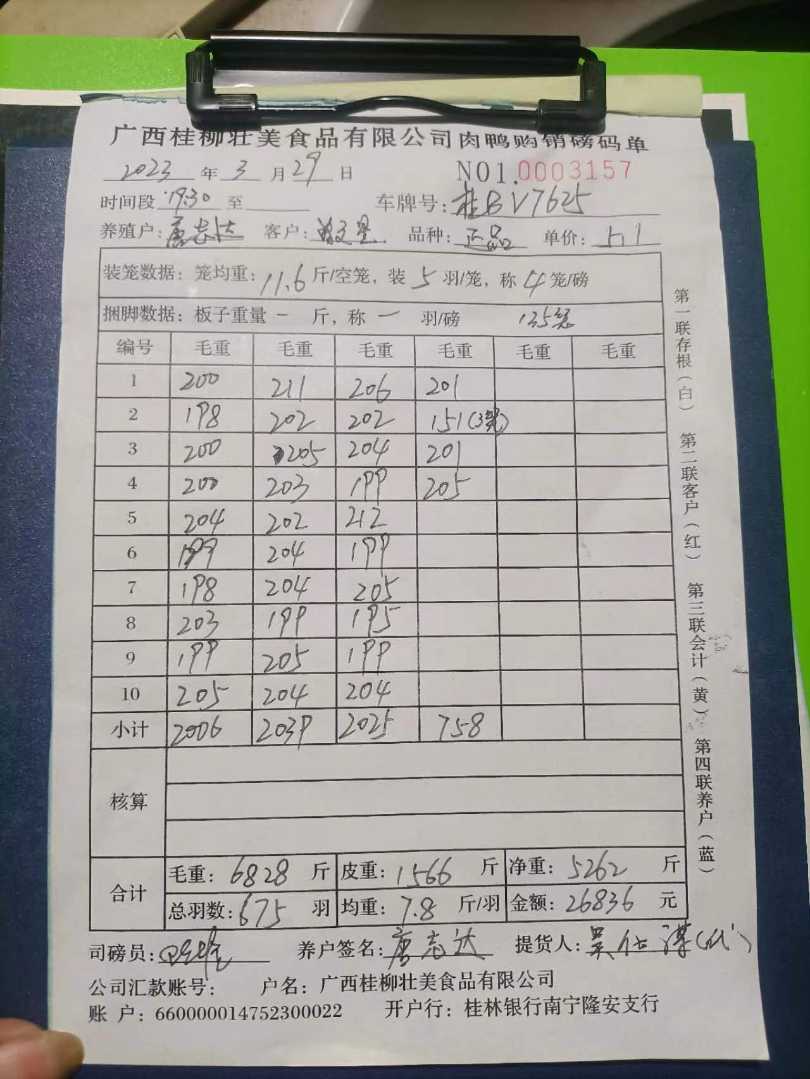 广西桂柳壮美食品有限公司肉鸭购销磅码单
2023 年 3 月 29 日 NO1.0003157
时间段 19:30 至 车牌号: 桂BV7625
养殖户: 唐志达 客户: 品种: 正品 单价: 5.1
装笼数据: 笼均重: 11.6 斤/空笼, 装 5 羽/笼, 称 4 笼/磅
捆脚数据: 板子重量 一 斤, 称 一 羽/磅 135笼
编号 毛重 毛重 毛重 毛重 毛重 毛重
1 200 211 206 201
2 198 202 202 151(3笼)
3 200 205 204 201
4 200 203 199 205
5 204 202 212
6 199 204 199
7 198 204 205
8 203 199 195
9 199 205 199
10 205 204 204
小计 2006 2039 2025 758
核算
合计 毛重: 6828 斤 皮重: 1566 斤 净重: 5262 斤
总羽数: 675 羽 均重: 7.8 斤/羽 金额: 26836 元
司磅员: 养户签名: 唐志达 提货人: 吴仕谋(代)
公司汇款账号: 户名: 广西桂柳壮美食品有限公司
账 户: 660000014752300022 开户行: 桂林银行南宁隆安支行
第一联存根(白) 第二联客户(红) 第三联会计(黄) 第四联养户(蓝)